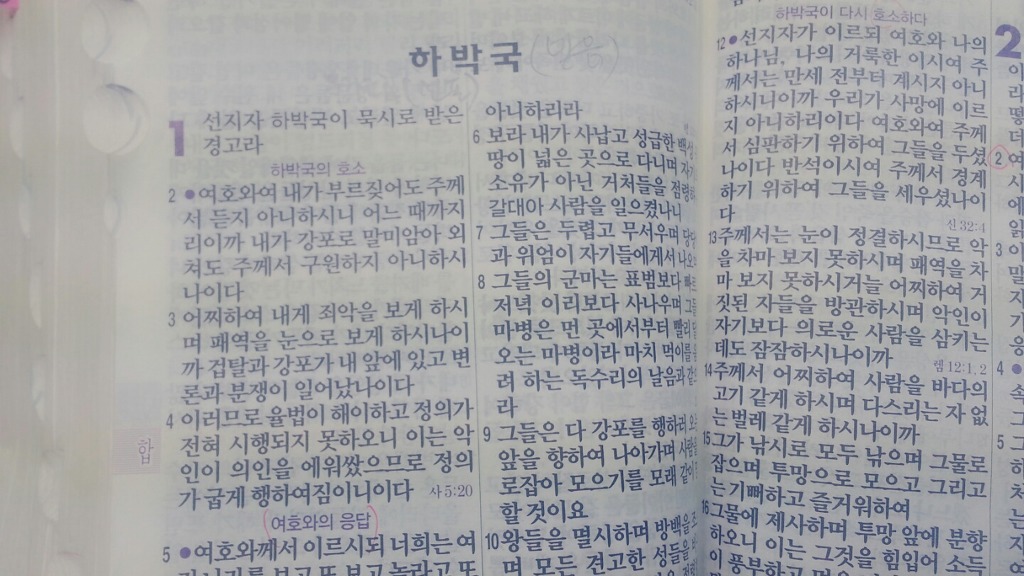 하박국 (믿음)
1
선지자 하박국이 묵시로 받은
경고라
하박국의 호소
2 ●여호와여 내가 부르짖어도 주께
서 듣지 아니하시니 어느 때까지
리이까 내가 강포로 말미암아 외
쳐도 주께서 구원하지 아니하시
나이다
3 어찌하여 내게 죄악을 보게 하시
며 패역을 눈으로 보게 하시나이
까 겁탈과 강포가 내 앞에 있고 변
론과 분쟁이 일어났나이다
4 이러므로 율법이 해이하고 정의가
전혀 시행되지 못하오니 이는 악
인이 의인을 에워쌌으므로 정의
가 굽게 행하여짐이니이다 사5:20
여호와의 응답
5 ●여호와께서 이르시되 너희는 여
합
아니하리라
6 보라 내가 사납고 성급한 백성
땅이 넓은 곳으로 다니며 자기
소유가 아닌 거처들을 점령하
갈대아 사람을 일으켰나니
7 그들은 두렵고 무서우며 당
과 위엄이 자기들에게서 나오
8 그들의 군마는 표범보다 빠르
저녁 이리보다 사나우며 그들
마병은 먼 곳에서부터 빨리 달
오는 마병이라 마치 먹이를 움
려 하는 독수리의 날음과 같으
라
9 그들은 다 강포를 행하러 오
앞을 향하여 나아가며 사람을
로잡아 모으기를 모래 같이
할 것이요
10 왕들을 멸시하며 방백을 조
며 모든 견고한 성들을
하박국이 다시 호소하다
12 ●선지자가 이르되 여호와 나의
하나님, 나의 거룩한 이시여 주
께서는 만세 전부터 계시지 아니
하시니이까 우리가 사망에 이르
지 아니하리이다 여호와여 주께
서 심판하기 위하여 그들을 두셨
나이다 반석이시여 주께서 경계
하기 위하여 그들을 세우셨나이
다 신32:4
13 주께서는 눈이 정결하시므로 악
을 차마 보지 못하시며 패역을 차
마 보지 못하시거늘 어찌하여 거
짓된 자들을 방관하시며 악인이
자기보다 의로운 사람을 삼키는
데도 잠잠하시나이까 렘12:1, 2
14 주께서 어찌하여 사람을 바다의
고기 같게 하시며 다스리는 자 없
는 벌레 같게 하시나이까
15 그가 낚시로 모두 낚으며 그물로
잡으며 투망으로 모으고 그리고
는 기뻐하고 즐거워하여
16 그물에 제사하며 투망 앞에 분향
하오니 이는 그것을 힘입어 소득
이 풍부하고
2
2 여
시
에
읽
3 이
밀
지
기
응
4 ●
속
그
5 그
하
처